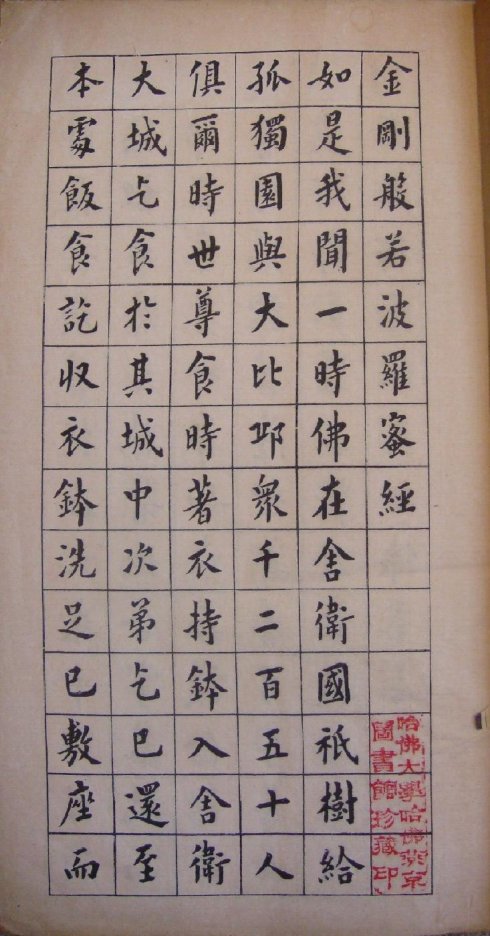 金剛般若波羅蜜經
如是我聞一時佛在舍衛國祇樹給
孤獨園與大比邱衆千二百五十人
俱爾時世尊食時著衣持鉢入舍衛
大城乞食於其城中次第乞已還至
本處飯食訖收衣鉢洗足已敷座而
哈佛大學哈佛燕京
圖書館珍藏印